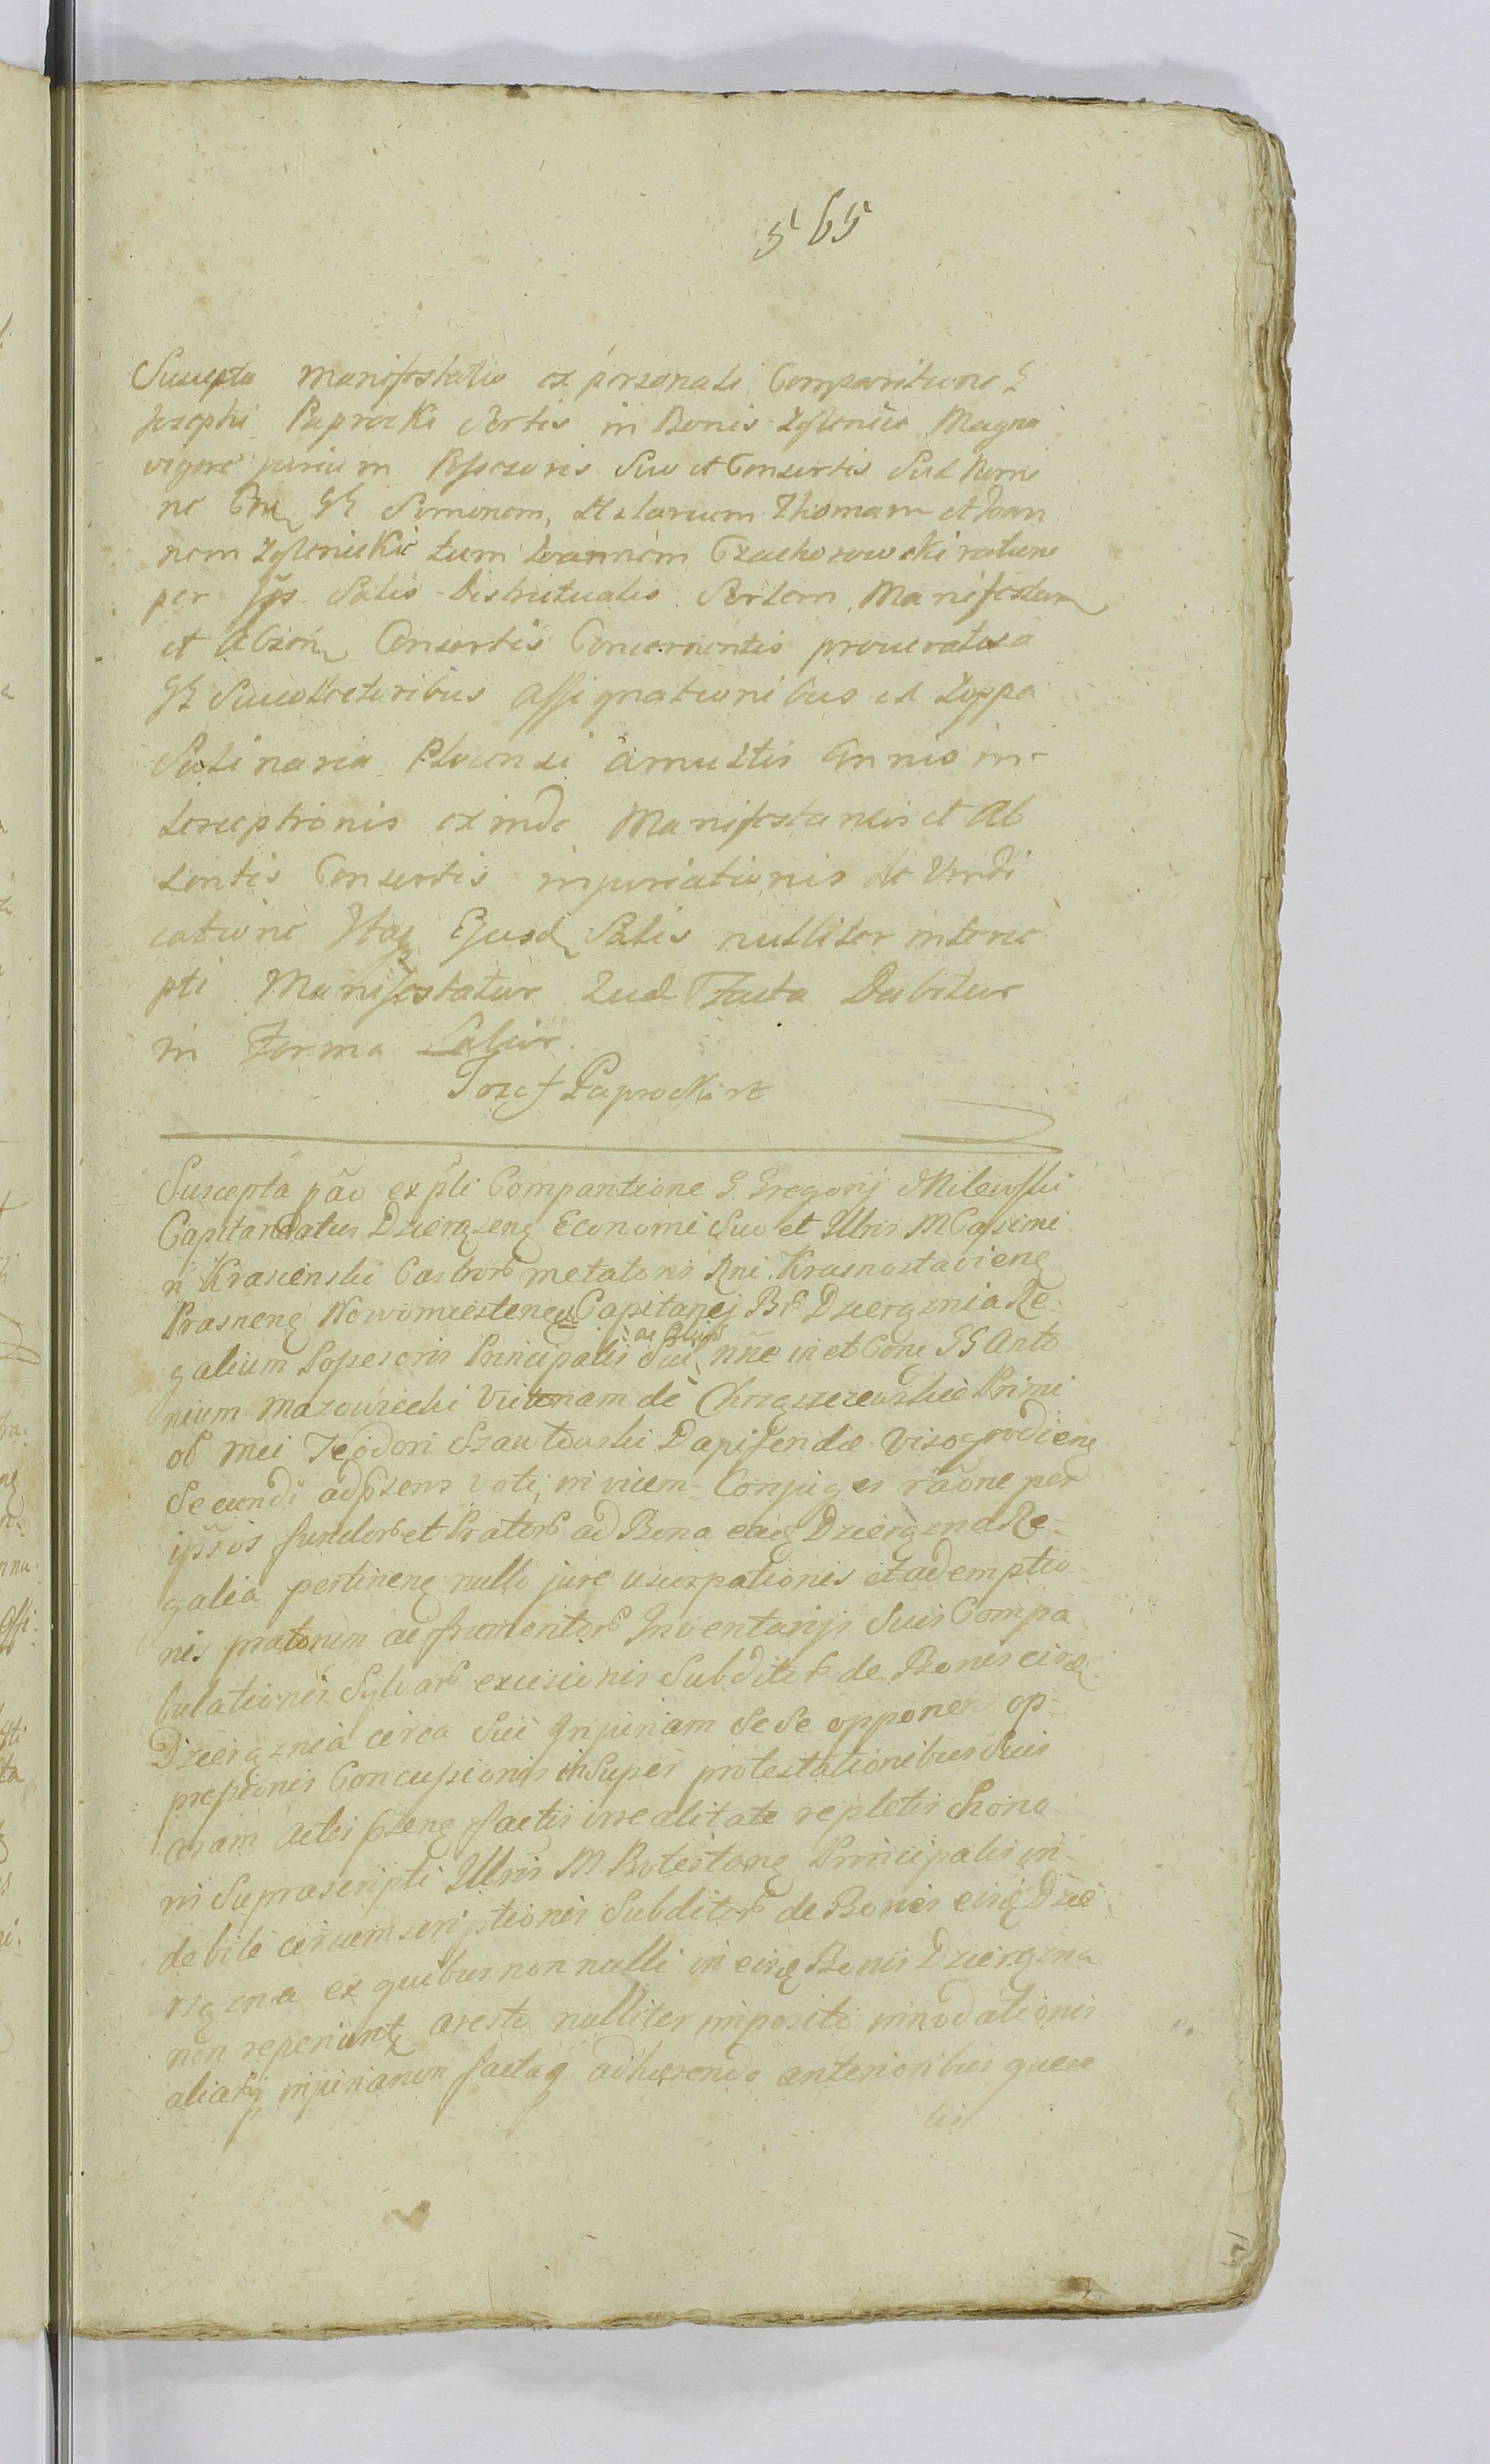 565
Suscepta Manifestatio ex personali Comparitione G
Josephi Paprocki Sortis in Bonis Zglenice Magna
vigore jurium Possesoris Suo et Consortis Suæ Nomi
ne Gnę GG Simonem, Hilarium Thomam et Joan
nem Zglenickie tum Joannem Czachorowski ratione
per Ips Salis Districtualis Sortem Manifestanę
et Absen Consortis Concernentis procuratis a
GG Succollectoribus Assignationibus ex Zuppa
Salinaria Plocensi a multis Annis in-
terceptionis exinde Manifestantis et Ab
sentis Consortis injuriationis de Vindi
catione Itaq Ejusd Salis nulliter interce
pti Manifestatur Quæ Facta Dabitur
in Forma Latior.
Jozef Paprocki
Suscepta pao ex pli Comparitione G. Gregorij Milewski
Capitaneatus Dzierązenę Economi Suo et Illris M Casimi
ri Krasienski Castror metatoris Rni Krasnostavienę
Prasnenę Nowomiestenę Capitanej Br Dzierąznia Re-
galium Possesoris Principalis Sui ac Alior nne in et Cone GG Anto
nium Mazowiecki Victoriam de Chrząszczewskie Primi
ob Mei Teodori Szawłowski Dapiferidæ Visogrodienę
Secundi ad psens voti, in vicem Conjuges raone per
ipsos fundor et Prator ad Bona eaę Dzierązna Re-
galia pertinenę nullo jure usurpationis et ademptio
nis pratorum ac frumentor Inventarijs Suis Compa
bulationis Sylvar excisionis Subditor de Bonis eisdę
Dzierąznia circa Sui Injuriam Se Se opponen op-
presionis Concussionis insuper protestationibus Suis
coram Actis psenę factis irrealitate repletis honо
ris Suprascripti Illris M Protestanę Principalis in-
debite circumscriptionis Subditor de Bonis eisdę Dzie
rązna ex quibus non nulli in eisdę Bonis Dzierązna
non reperiuntę aresto nulliter imposito innodationis
aliarq injuriarum factaq adhærendo anterioribus quere
lis